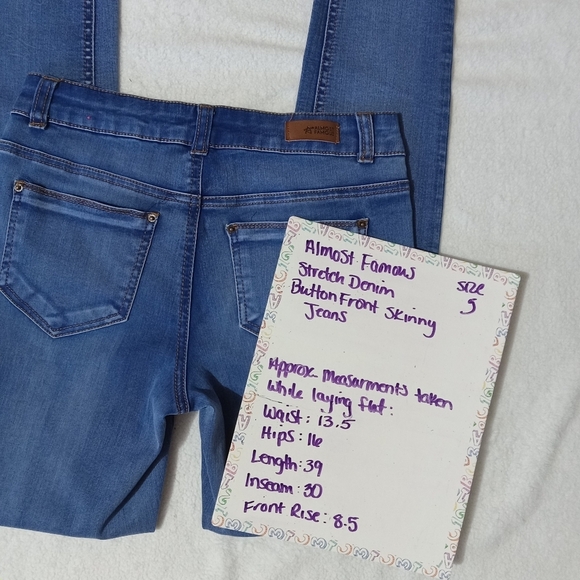 Almost Famous
Stretch Denim
Button Front Skinny
Jeans
Size
5
Approx. Measurments taken
While laying flat:
Waist: 13.5
Hips: 16
Length: 39
Inseam: 30
Front Rise: 8.5